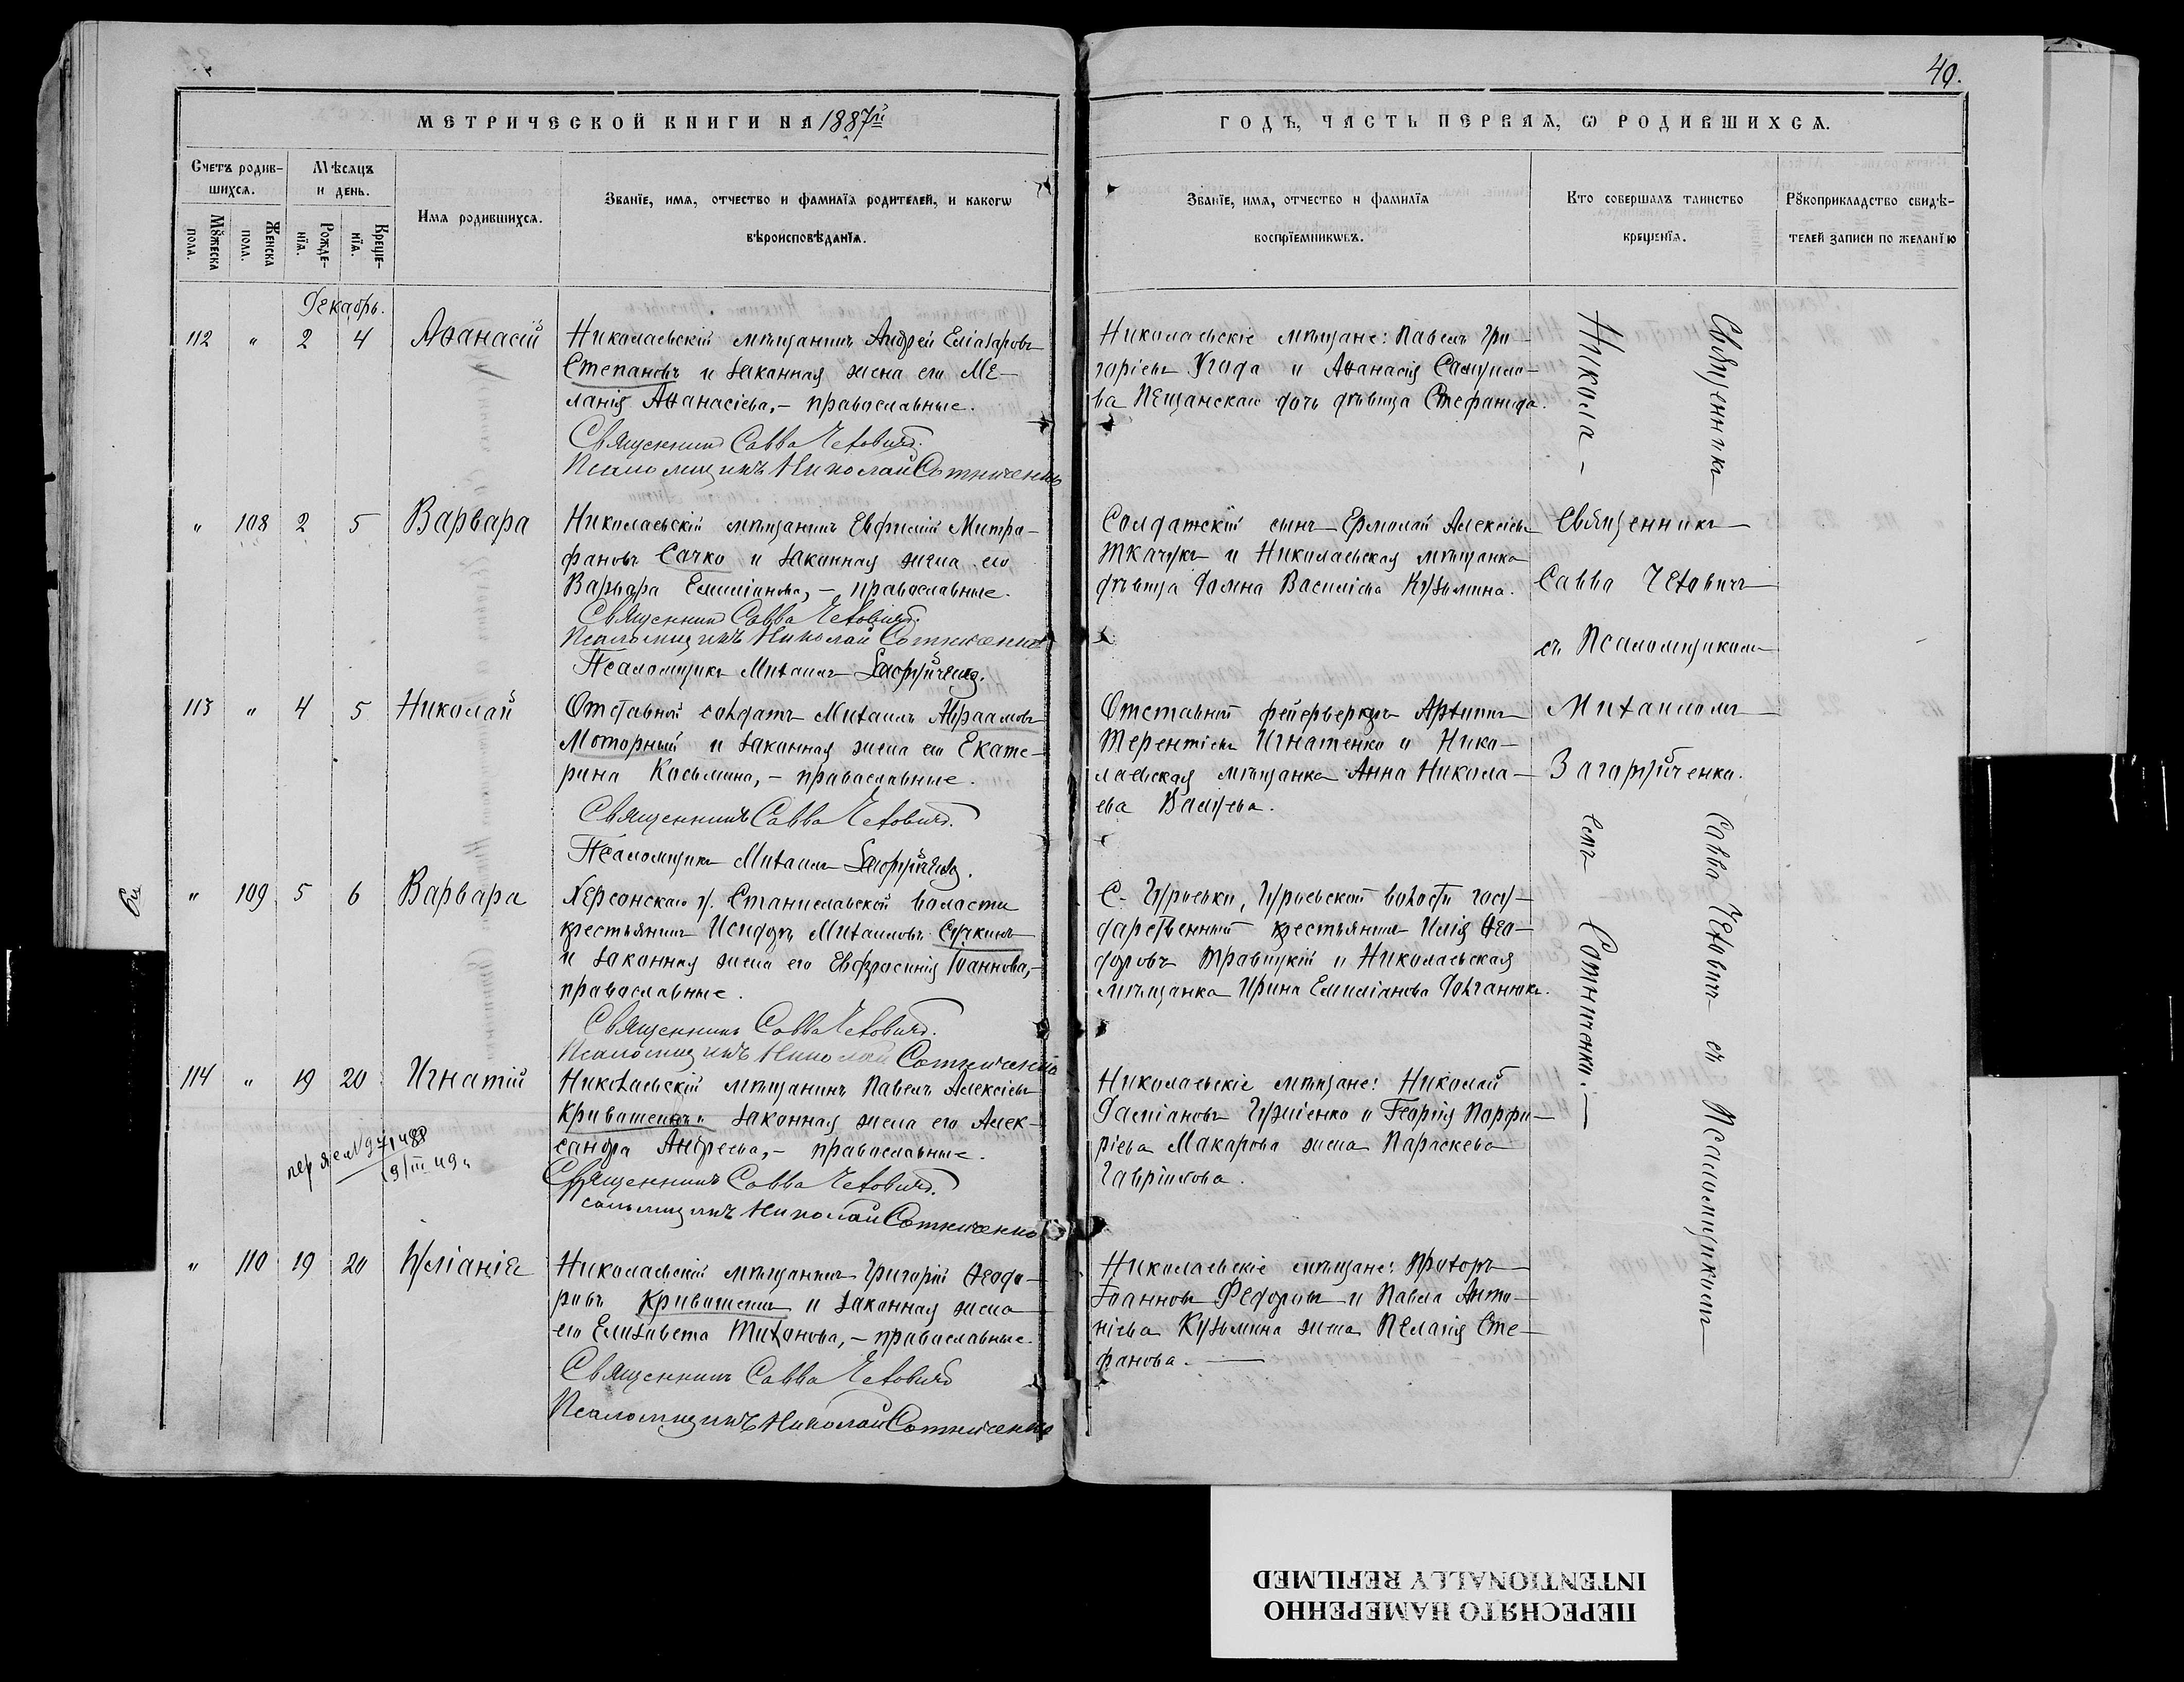 40.
МЕТРИЧЕСКОЙ КНИГИ НА 1887й
ГОДЪ, ЧАСТЬ ПЕРВАЯ, Ѡ РОДИВШИХСЯ.
Счетъ родив-
шихся.
Мѣсяцъ
и день.
Мꙋжеска
пола.
Женска
пола.
Рожде-
нїя.
Креще-
нїя.
Имя родившихся.
Званїе, имя, отчество и фамилїя родителей, и какогѡ
вѣроисповѣданїя.
Званїе, имя, отчество и фамилїя
воспрїемникѡвъ.
Кто совершалъ таинство
крещенїя.
Рꙋкоприкладство свидѣ-
телей записи по желанїю
Декабрь.
112 " 2 4 Аѳанасій
Николаевскій мѣщанинъ Андрей Еліазаровъ
Степановъ и законная жена его Ме-
ланія Аѳанасіева,- православные.
Священникъ Савва Чеховичъ.
Псаломщикъ Николай Сотниченко
Николаевскіе мѣщане: Павелъ Гри-
горіевъ Угода и Аѳанасія Самуило-
ва Пещанскаго дочь дѣвица Стефанида.
Священникъ
Никола-
" 108 2 5 Варвара
Николаевскій мѣщанинъ Евфимій Митро-
фановъ Сачко и законная жена его
Варвара Емиліанова,- православные.
Священникъ Савва Чеховичъ.
Псаломщикъ Николай Сотниченко
Псаломщикъ Михаилъ Загоруйченко.
Солдатскій сынъ Ермолай Алексіевъ
Ткачукъ и Николаевская мѣщанка
дѣвица Домна Василіева Кузьмина.
Священникъ
Савва Чеховичъ
съ Псаломщикомъ
Михаиломъ
Загоруйченко.
113 " 4 5 Николай
Отставной солдатъ Михаилъ Авраамовъ
Моторный и законная жена его Екате-
рина Косьмина,- православные.
Священникъ Савва Чеховичъ.
Псаломщикъ Михаилъ Загоруйченко.
Отставной фейерверкеръ Архипъ
Терентіевъ Игнатенко и Нико-
лаевская мѣщанка Анна Никола-
ева
" 109 5 6 Варвара
Херсонскаго у. Станиславской волости
крестьянинъ Исидоръ Михаиловъ Сучкинъ
и законная жена его Евфросинія Іоаннова,-
православные.
Священникъ Савва Чеховичъ.
Псаломщикъ Николай Сотниченко
С. Гурьевки, Гурьевской волости госу-
дарственный крестьянинъ Илія Ѳео-
доровъ Травицкій и Николаевская
мѣщанка Ирина Емиліанова
Савва Чеховичъ съ Псаломщикомъ
емъ Сотниченко.
114 " 19 20 Игнатій
Николаевскій мѣщанинъ Павелъ Алексіевъ
Кривошеинъ и законная жена его Алек-
сандра Андреева,- православные.
Священникъ Савва Чеховичъ.
Псаломщикъ Николай Сотниченко
Николаевскіе мѣщане: Николай
Даміановъ и Георгія Порфи-
ріева Макарова жена Параскева
Гавріилова.
" 110 19 20 Іуліанія
Николаевскій мѣщанинъ Григорій Ѳеодо-
ровъ Кривошеинъ и законная жена
его Елизавета Тихонова,- православные.
Священникъ Савва Чеховичъ
Псаломщикъ Николай Сотниченко
Николаевскіе мѣщане: Прохоръ
Іоанновъ Федоровъ и Павла Анто-
ніева Кузьмина жена Пелагія Сте-
фанова.
ПЕРЕСНЯТО НАМЕРЕННО
INTENTIONALLY REFILMED